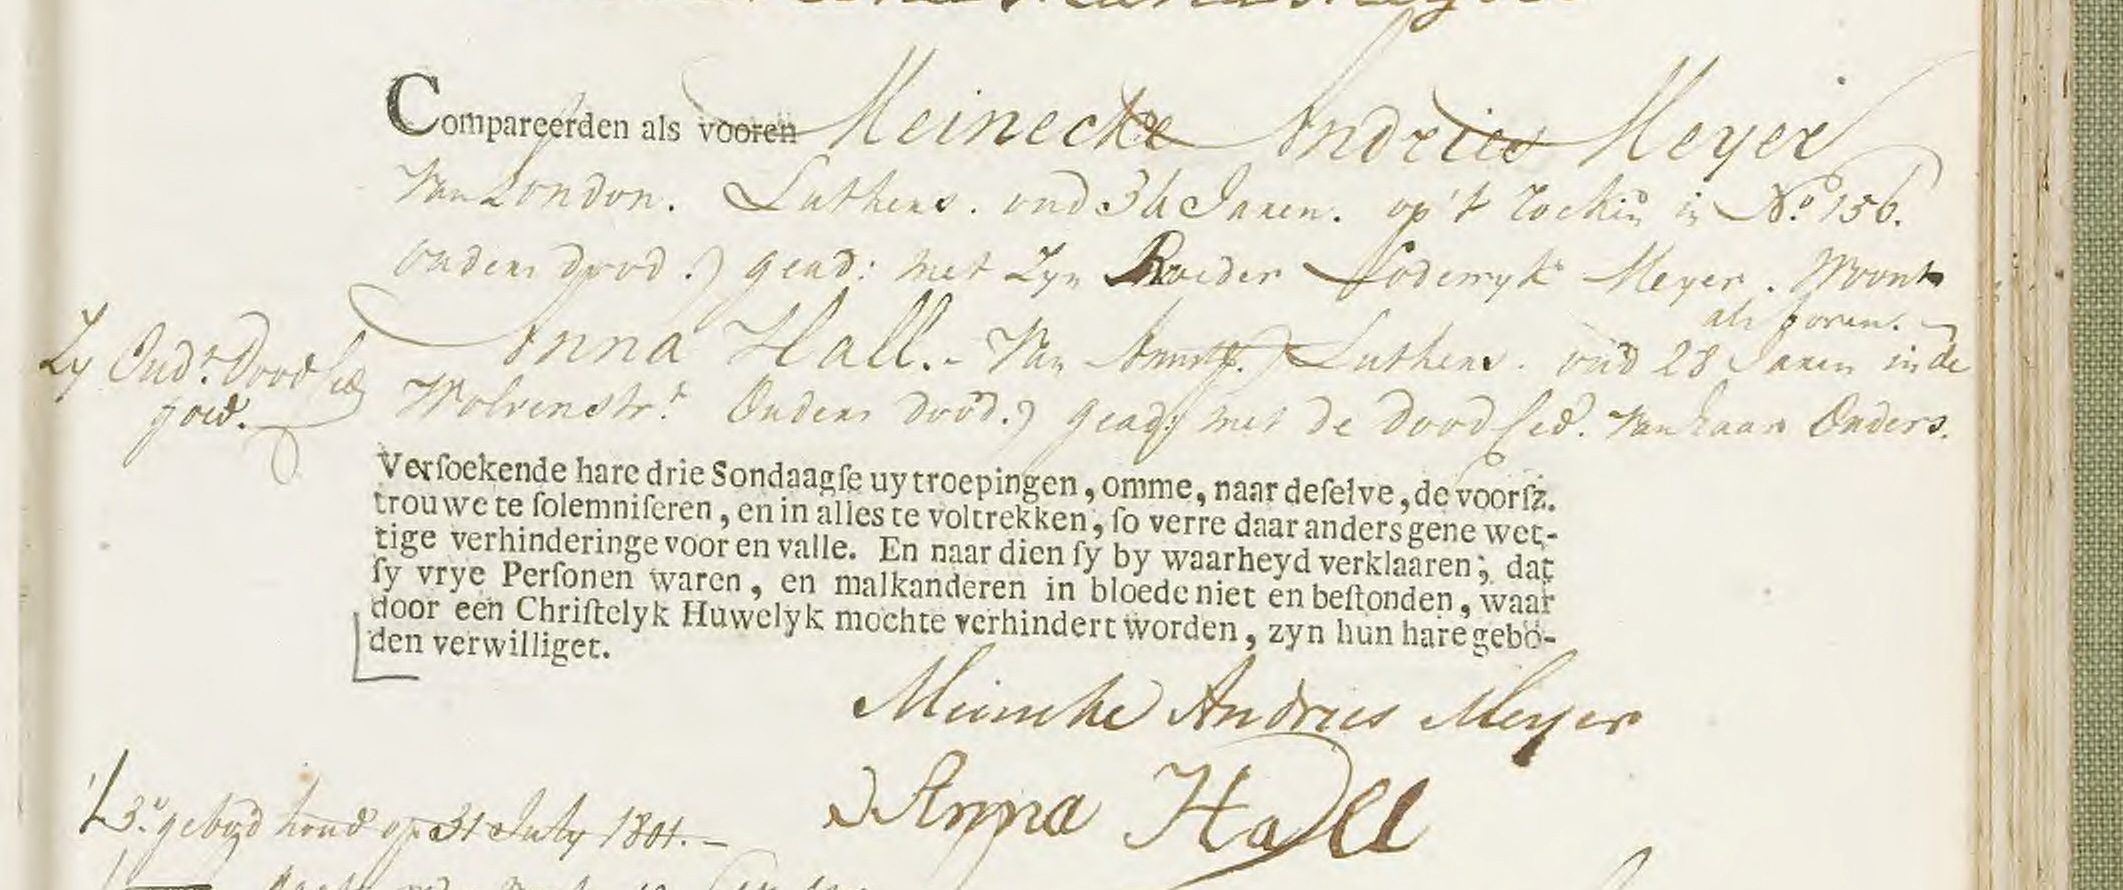 Compareerden als vooren Meinecke Andries Meyer
Van London. Luthers. oud 34 Jaren. op't Rockin in No. 156.
ouders dood.) gead: met Zyn Broeder Lodewyk Meyer. Woont
als voren.
Anna Hall. Van Amst. Luthers. oud 28 Jaren in de
Zy Oud.s Dood Ced
goed.
Wolvenstr.t Ouders dood.) gead: met de dood Ced. van haar Ouders.
Versoekende hare drie Sondaagſe uytroepingen, omme, naar deſelve, de voorſz.
trouwe te ſolemniſeren, en in alles te voltrekken, ſo verre daar anders gene wet-
tige verhinderinge voor en valle. En naar dien ſy by waarheyd verklaaren, dat
ſy vrye Perſonen waren, en malkanderen in bloede niet en beſtonden, waar
door een Chriſtelyk Huwelyk mochte verhindert worden, zyn hun hare gebo-
den verwilliget.
Meineke Andries Meyer
Anna Hall
't 3.e gebod houd op 31 July 1801.